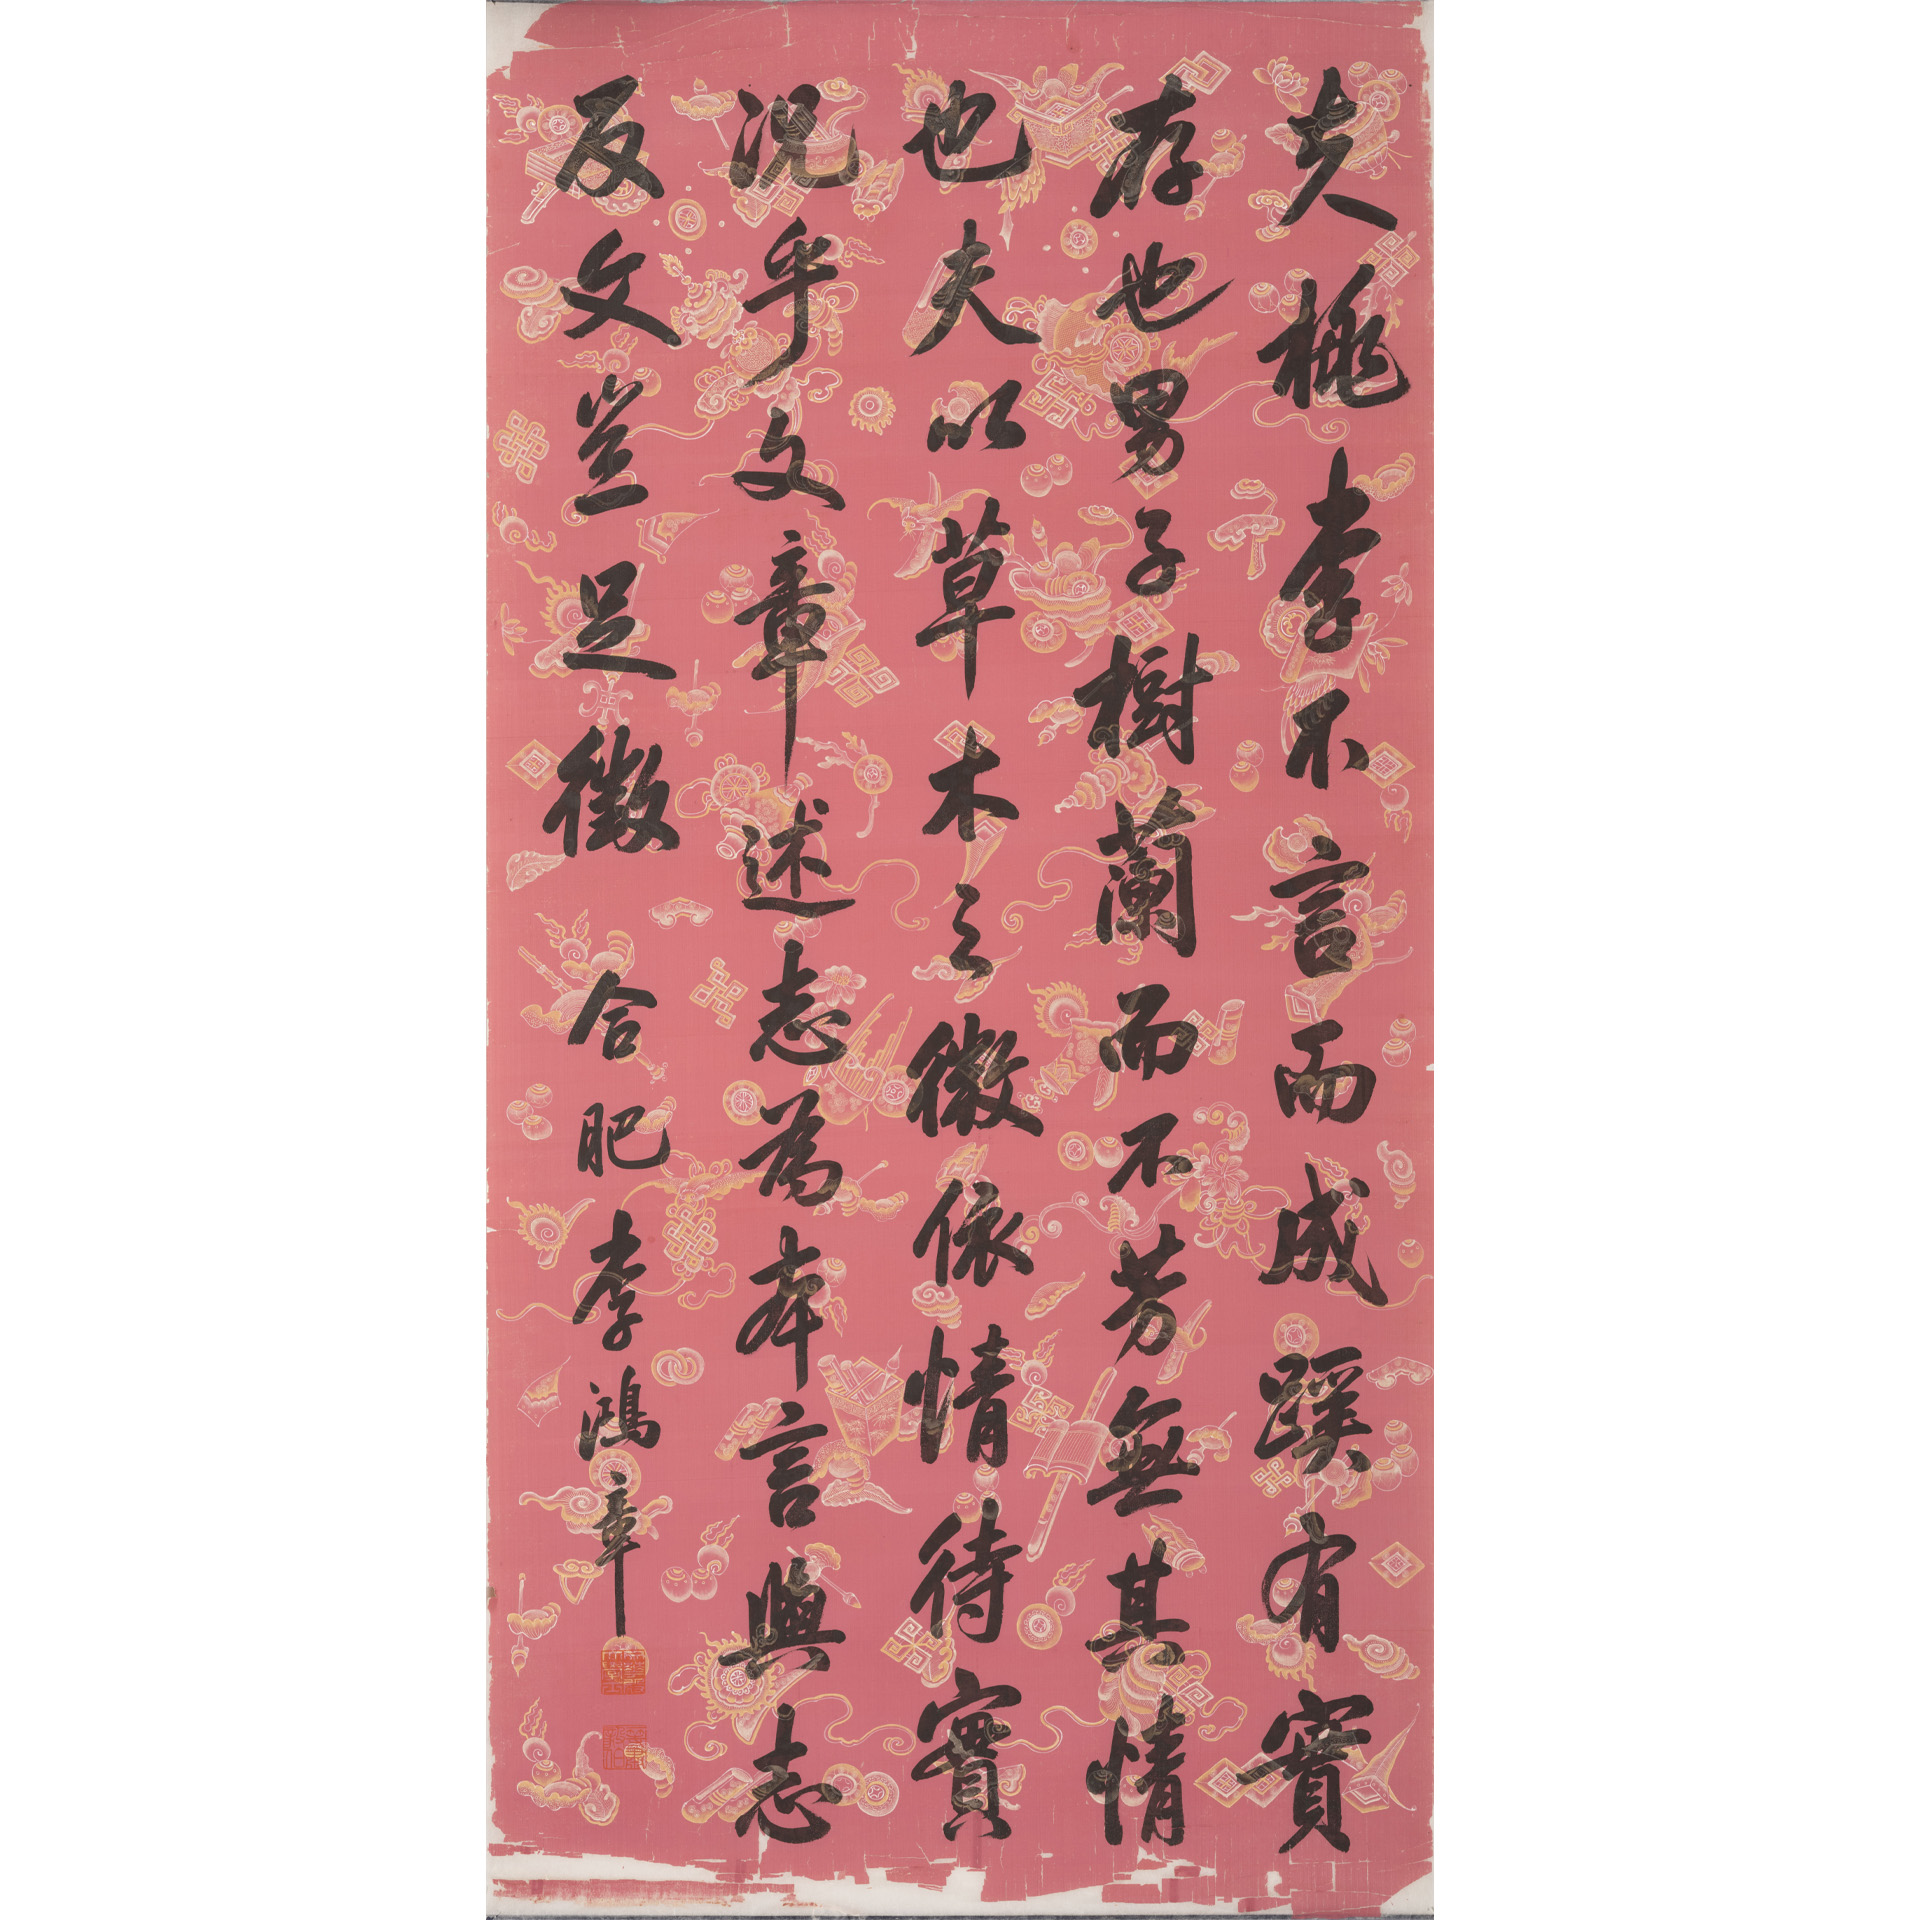 夫桃李不言而成蹊有實
存也男子樹蘭而不芳無其情
也夫以草木之微依情待實
況乎文章述志為本言與志
反文豈足徵
合肥李鴻章